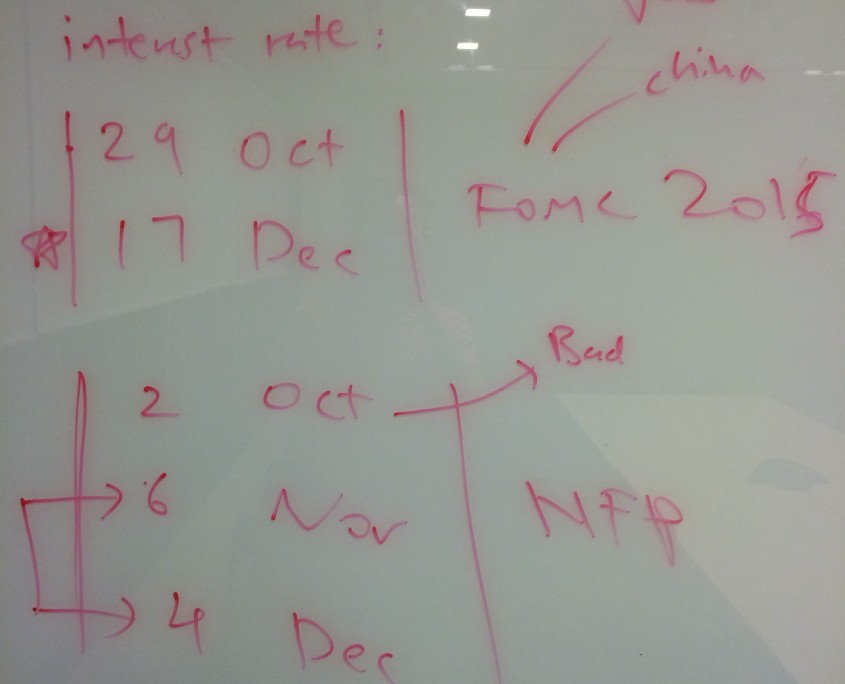 interest rate:
china
29 Oct
17 Dec
FOMC 2015
Bad
2 Oct
6 Nov
NFP
4 Dec